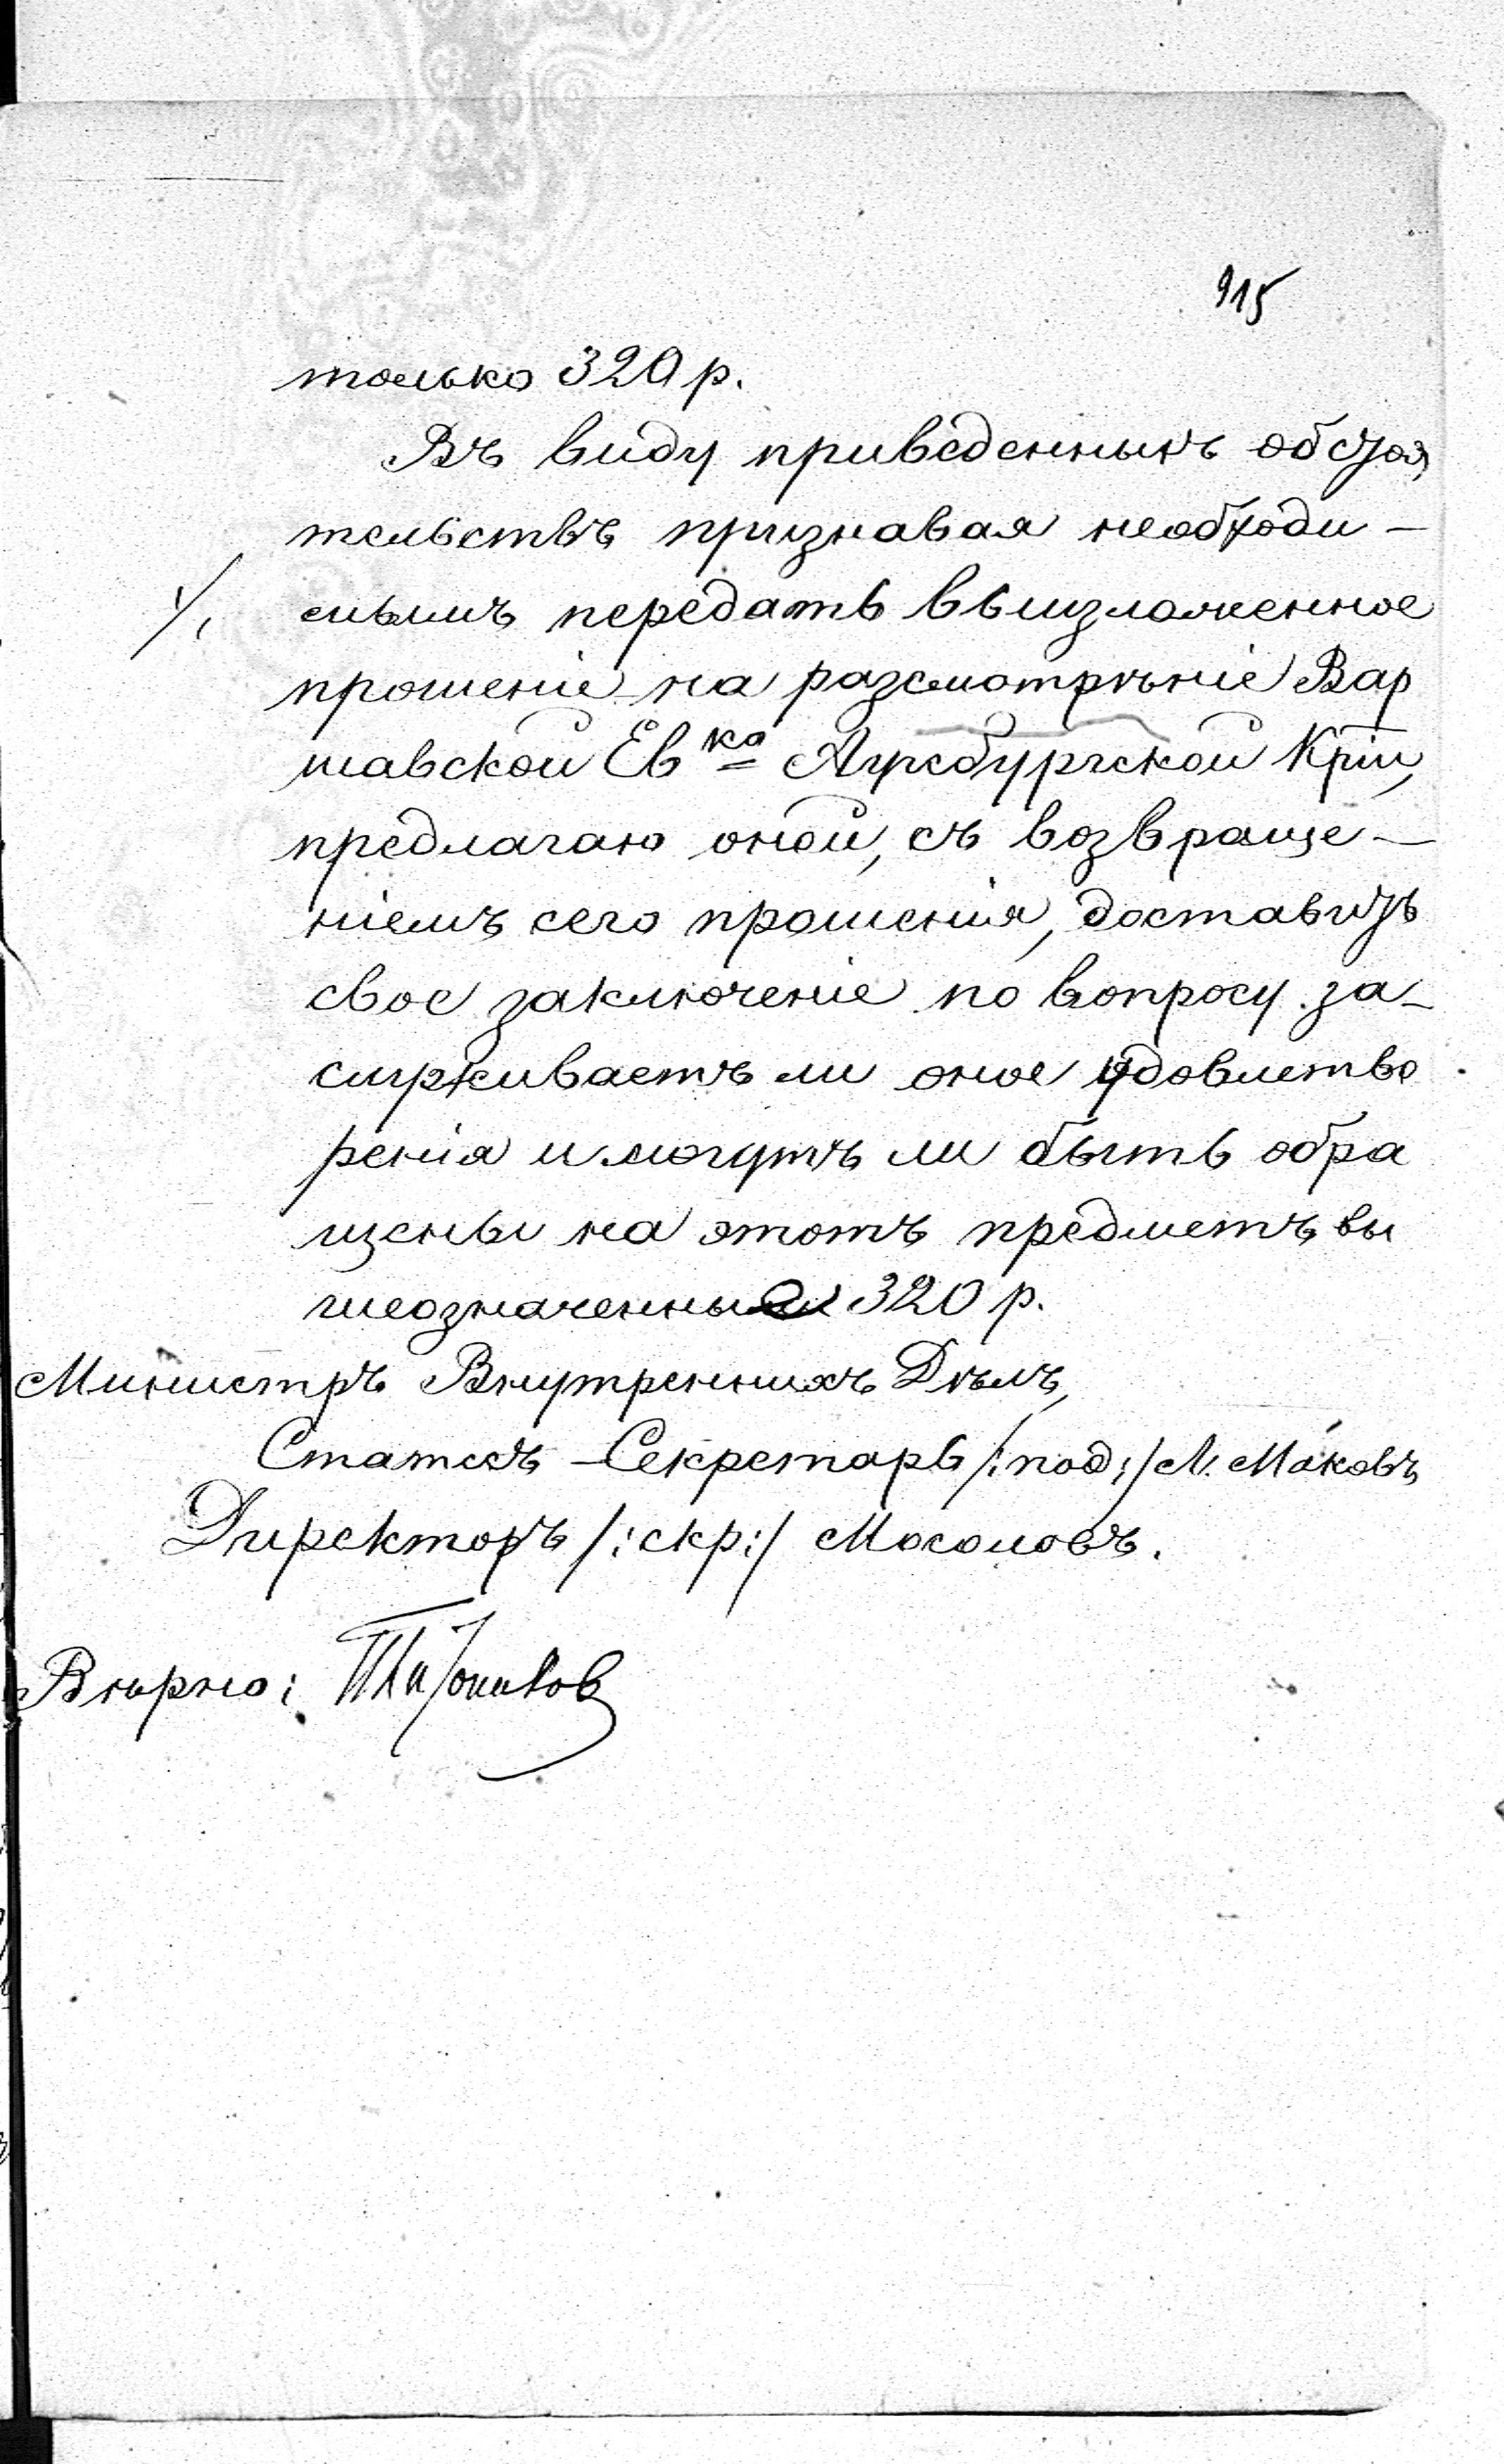 915
только 320 р.
Въ виду приведенныхъ обстоя
тельствъ признавая необходи-
мымъ передать вышзложенное
прошеніе на разсмотрѣніе Вар
шавской Евко Аугсбургской Кріи,
предлагаю оной, съ возвраще-
ніемъ сего прошенія, доставить
свое заключеніе по вопросу за-
служиваетъ ли оное удовлетво
ренія и могутъ ли быть обра
щены на этотъ предметъ вы
шеозначенные 320 р.
Министръ Внутреннихъ Дѣлъ,
Статсъ-Секретарь /:под:/ Л. Маковъ
Директоръ /:скр:/ Мосоловъ.
Вѣрно: